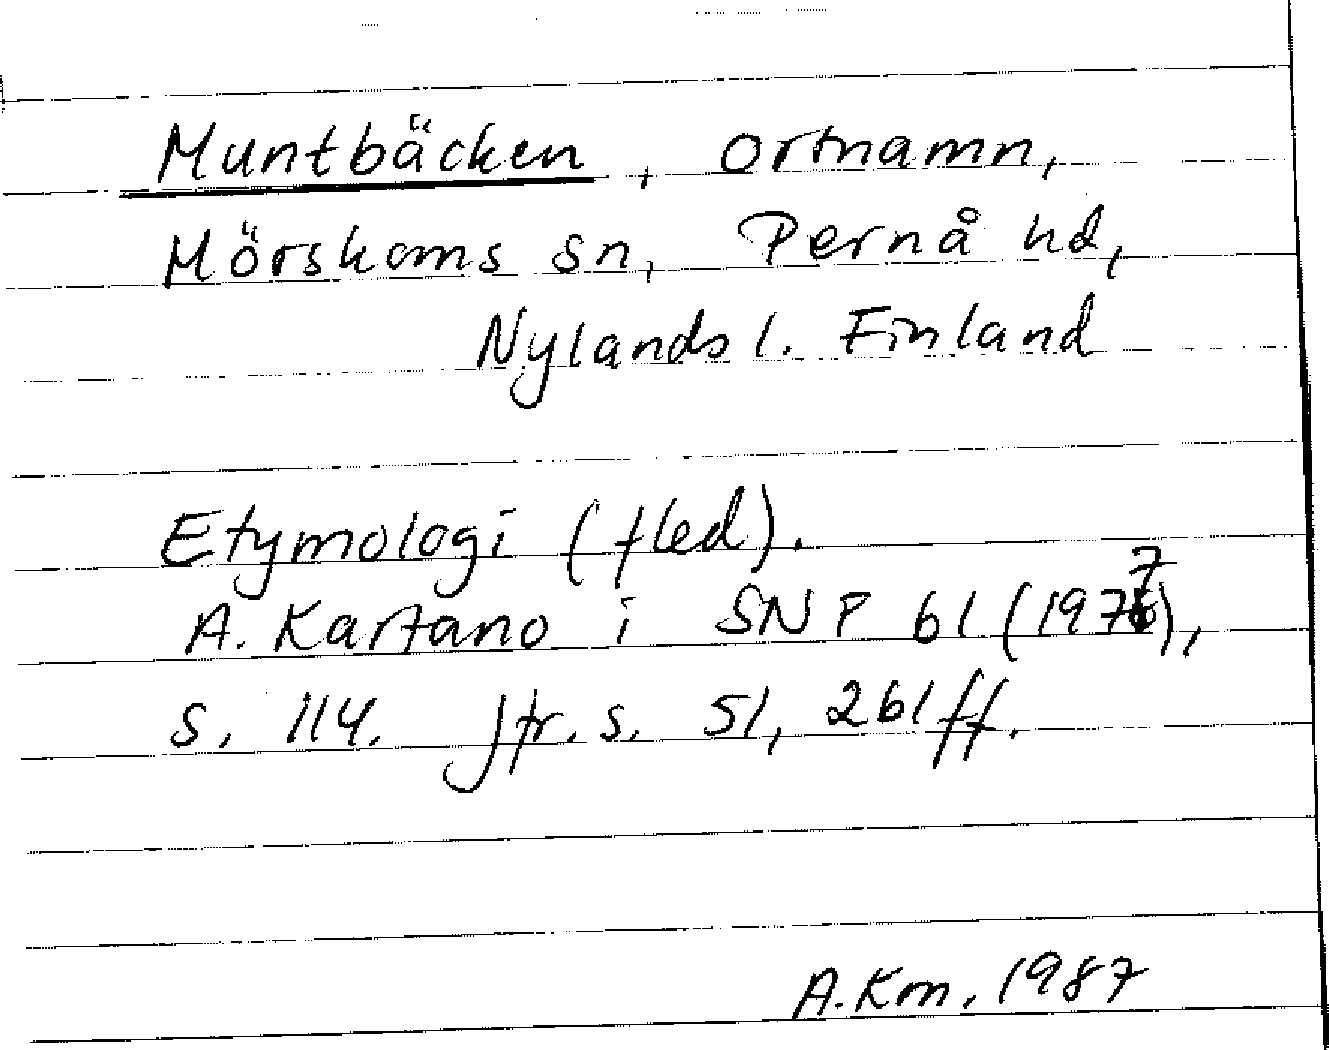 Muntbäcken, ortnamn,
Mörskoms sn, Pernå hd,
Nylands l. Finland
Etymologi (fled).
A. Kartano i SNF 61 (1977),
s. 114. Jfr. s. 51, 261 ff.
A. Km. 1987